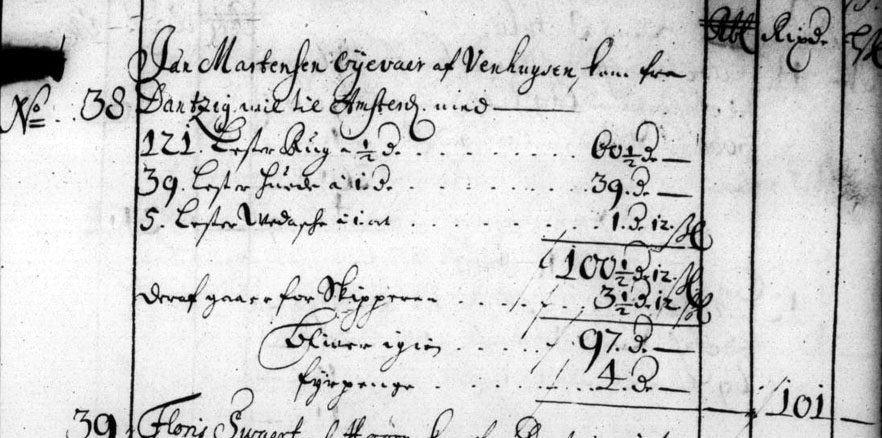 Rixd.
Jan Martensen Oyevaer af Venhuysen, kom fra
No 38 Dantzig, wil til Amsterd. med
121. Lester Rug a 1/2 d. . . . . 60 1/2 d.
39. Lester Huede a 1. d. . . . . 39. d.
5. Lester Wedasche a 1. ort . . . . . 1. d. 12. ß
100 1/2 d. 12. ß
Deraf gaaer for Skipperen . . . . 3 1/2 d. 12 ß
Bliver igien . . . . 97. d.
fyrpenge . . . . 4. d. 101
39. Floris